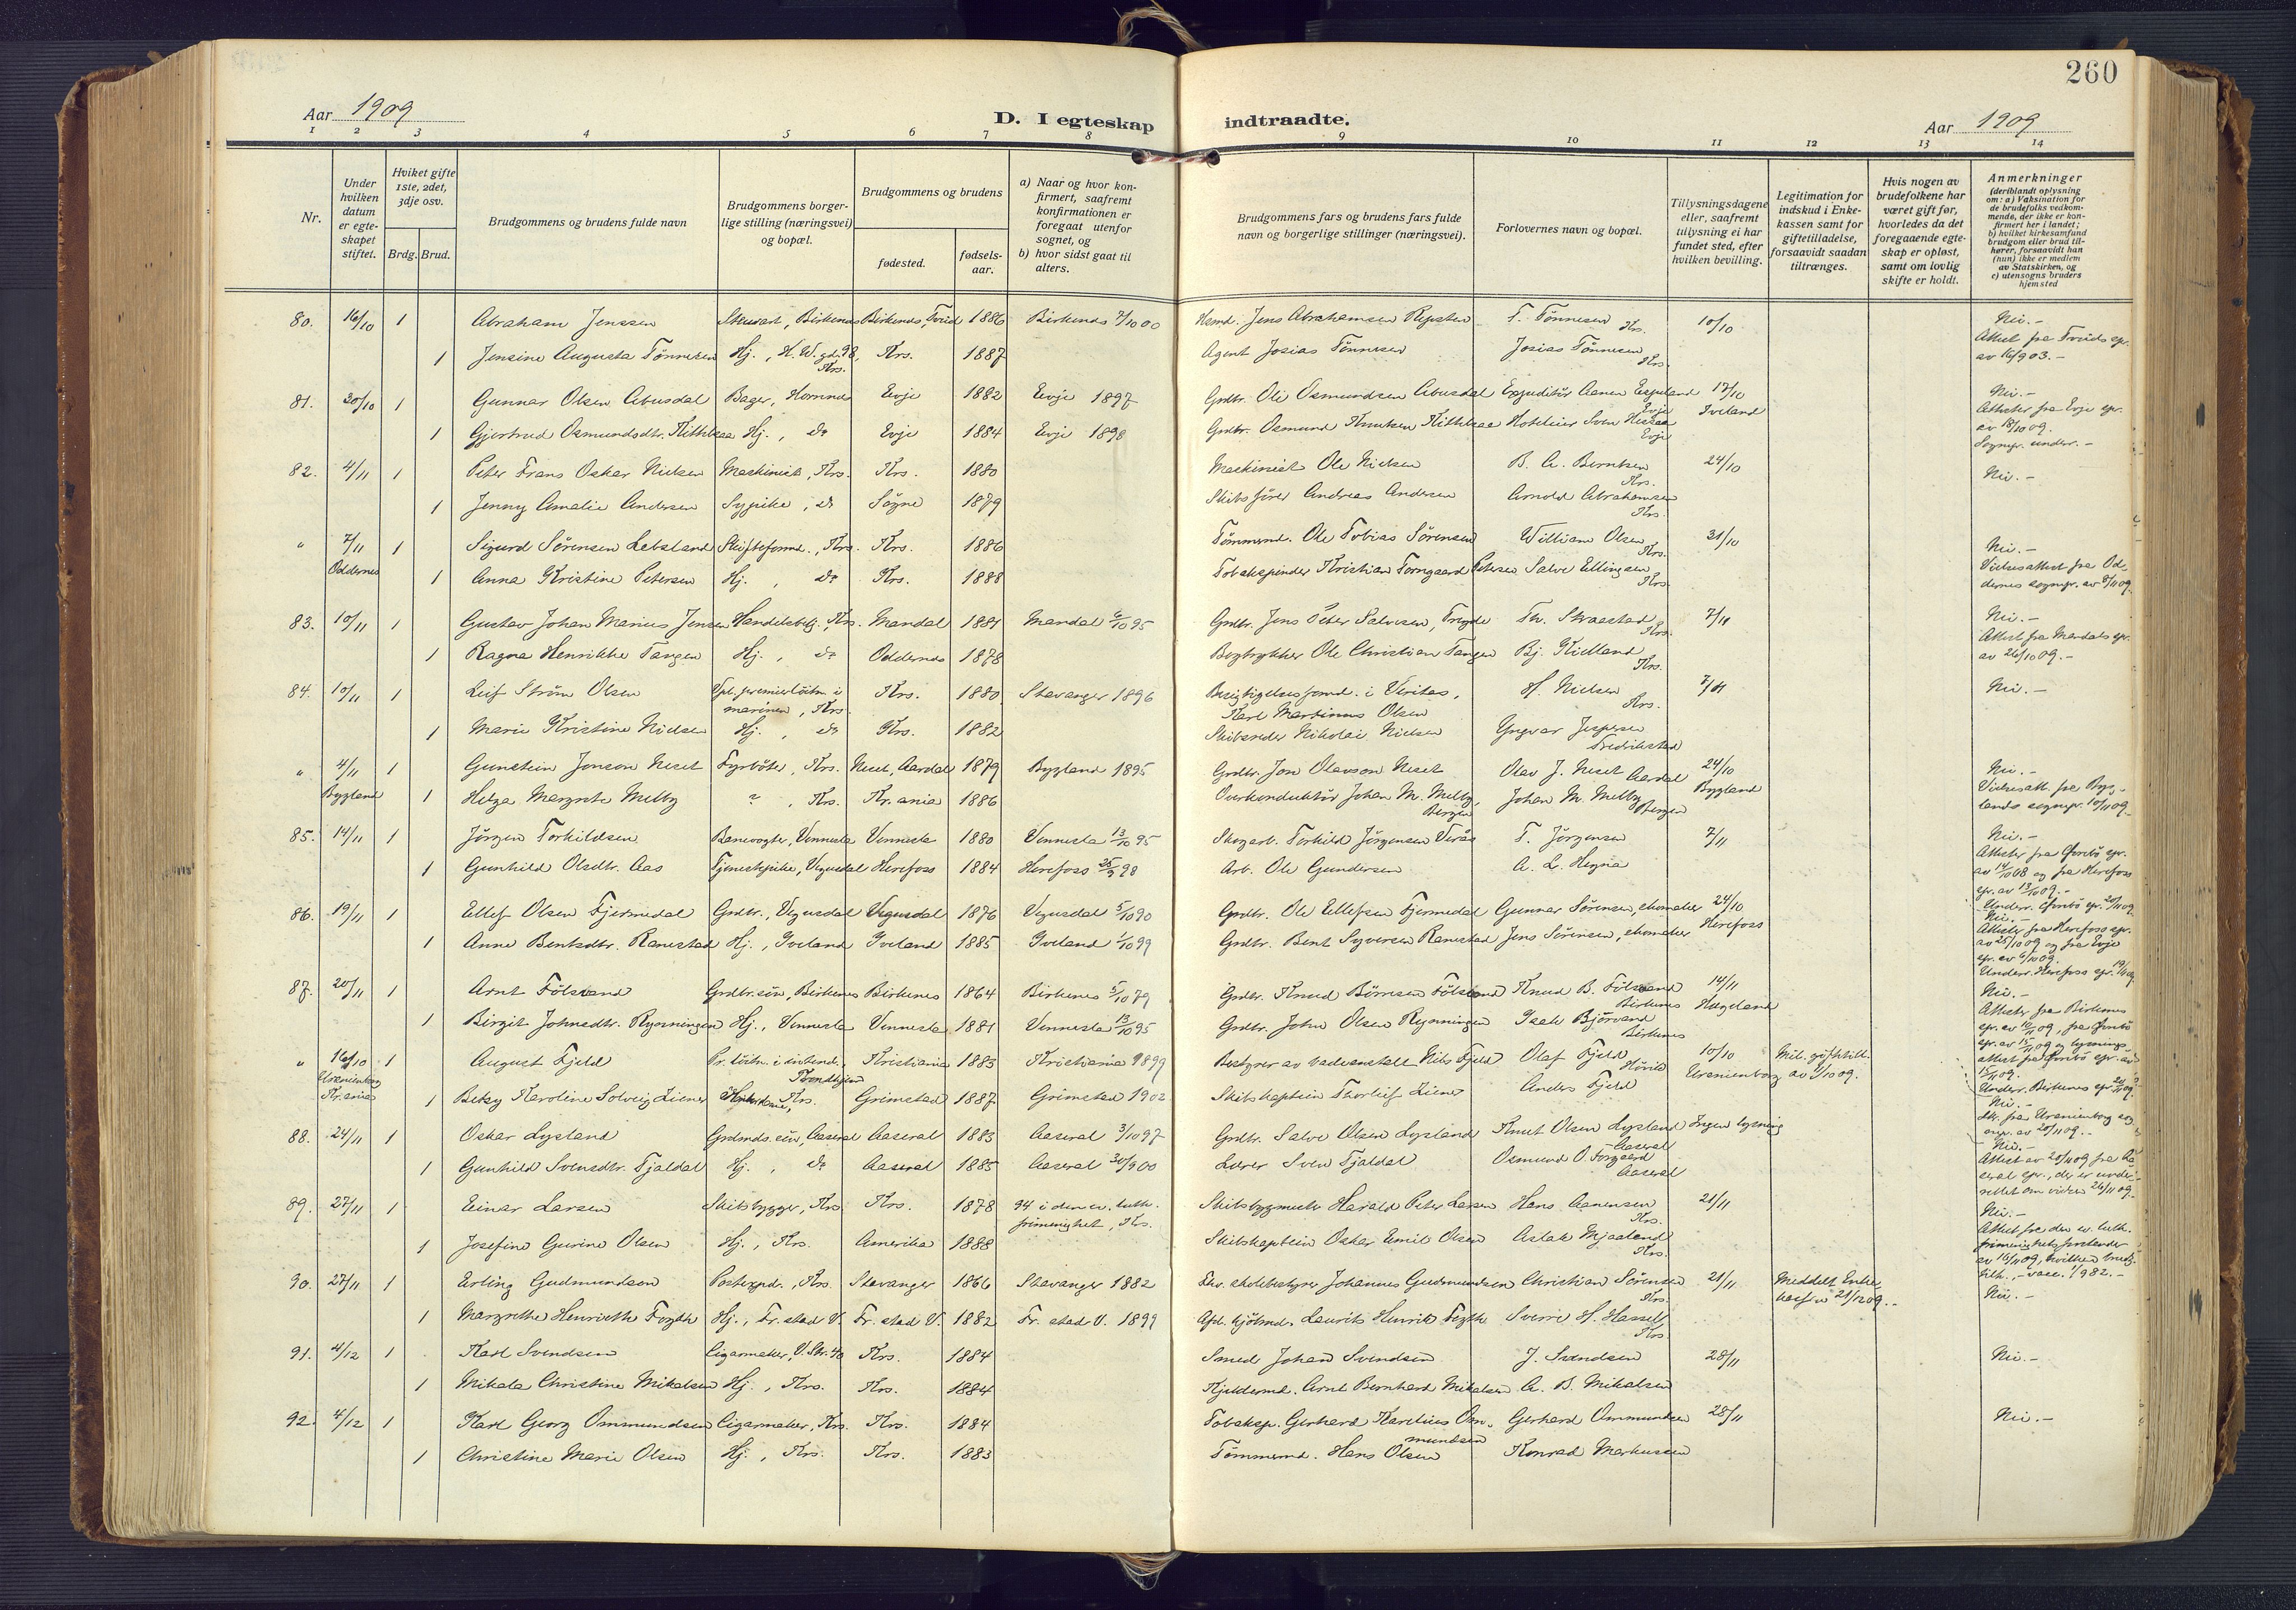 260
Aar 1909
D. I egteskap indtraadte.
Aar 1909
1 2 3 4 5 6 7 8 9 10 11 12 13 14
Nr.
Under hvilken datum er egteskapet stiftet.
Hviket gifte 1ste, 2det, 3dje osv.
Brdg. Brud.
Brudgommens og brudens fulde navn
Brudgommens borgerlige stilling (næringsvei) og bopæl.
Brudgommens og brudens
fødested.
fødselsaar.
a) Naar og hvor konfirmert, saafremt konfirmationen er foregaat utenfor sognet, og
b) hvor sidst gaat til alters.
Brudgommens fars og brudens fars fulde navn og borgerlige stillinger (næringsvei).
Forlovernes navn og bopæl.
Tillysningsdagene eller, saafremt tillysning ei har fundet sted, efter hvilken bevilling.
Legitimation for indskud i Enkekassen samt for giftetilladelse, forsaavidt saadan tiltrænges.
Hvis nogen av brudefolkene har været gift før, hvorledes da det foregaaende egteskap er opløst, samt om lovlig skifte er holdt.
Anmerkninger
(deriblandt oplysning om: a) Vaksination for de brudefolks vedkommende, der ikke er konfirmert her i landet; b) hvilket kirkesamfund brudgom eller brud tilhører, forsaavidt han (hun) ikke er medlem av Statskirken, og c) utensogns bruders hjemsted
80. 16/10 1 Abraham Jenssen Stuwart, Birkenes Birkenes, Tveid 1886 Birkenes 7/10 00 Jens Abrahamsen Repsten T. Tønnesen Krs. 10/10 Nei.-
1 Jensine Augusta Tønnesen Hj., H. W. gd. 98, Krs. Krs. 1887 Agent Josias Tønnesen Josias Tønnesen Krs. Attest fra Tveids spr. av 16/9 03.-
81. 20/10 1 Gunnar Olsen Abusdal Bager, Hornnes Evje 1882 Evje 1897 Grdbr. Ole Osmundsen Abusdal Expeditør Aanen Espeland Evje 17/10 Iveland Nei.-
1 Gjertrud Osmundsdtr. Kittelsaa Hj., do Evje 1884 Evje 1898 Grdbr. Osmund Knutsen Kittelsaa Hoteleier Sven Evje Attester fra Evje spr. av 18/10 09.
82. 4/11 1 Peter Frans Oskar Nielsen Maskinist, Krs. Krs. 1880 Maskinist Ole Nielsen B. A. Berntsen Krs. 24/10 Nei.-
1 Jenny Amalie Andersen Sypike, do Søgne 1879 Skibsfører Andreas Andersen Arnold Abrahamsen Krs.
" 7/11 Oddernes 1 Sigurd Sørensen Lebsland Skifteformd., Krs. Krs. 1886 Tømmermd. Ole Tobias Sørensen William Olsen Krs. 31/10 Nei.-
1 Anna Kristine Petersen Hj., do Krs. 1888 Tobakspinder Kristian Torngaard Petersen Salve Ellingsen Krs. Vielsesattest fra Oddernes sognepr. av 8/11 09.
83. 10/11 1 Gustav Johan Marius Jensen Handelsbetj., Krs. Mandal 1881 Mandal 6/10 95 Grdbr. Jens Peter Salvesen, Tregde Th. Straastad Krs. 7/11 Nei.-
1 Ragna Henrikke Tangen Hj., do Oddernes 1878 Bogtrykker Ole Christian Tangen Bj. Kielland Krs. Attest fra Mandals spr. av 26/10 09.-
84. 10/11 1 Leif Strøm Olsen premierløitn. i marinen, Krs. Krs. 1880 Stavanger 1896 Besigtigelsesformd. i Veritas, Karl Martinius Olsen H. Nielsen Krs. 7/11 Nei.-
1 Marie Kristine Nielsen Hj., do Krs. 1882 Skibsreder Nikolai Nielsen Yngvar Jespersen Fredrikstad
" 4/11 Bygland 1 Gunstein Jonson Neset Fyrbøter, Krs. Neset, Aardal 1879 Bygland 1895 Grdbr. Jon Olavson Neset Olav J. Neset Aardal 24/10 Bygland Nei.-
1 Helga Margrete Melby ?, Krs. Kr.ania 1886 Overkonduktør Johan M. Melby, Bergen Johan M. Melby Bergen Vielsesatt. fra Byglands sognepr. 10/11 09.-
85. 14/11 1 Jørgen Torkildsen Banevogter, Vennesla Vennesla 1880 Vennesla 13/10 95 Skogarb. Torkild Jørgensen Verås T. Jørgensen 7/11 Nei.-
1 Gunhild Olsdtr. Aas Tjenestepike, Vegusdal Herefoss 1884 Herefoss 25/9 98 Arb. Ole Gundersen A. L. Hegna Attester fra Øvrebø spr. av 14/10 08 og fra Herefoss spr. av 13/10 09.-
Underr. Øvrebø spr. 20/11 09
86. 19/11 1 Ellef Olsen Fjermedal Grdbr., Vegusdal Vegusdal 1876 Vegusdal 5/10 90 Grdbr. Ole Ellefsen Fjermedal Gunnar Sørensen, skomaker 24/10 Herefoss Nei.-
1 Anne Bentsdtr. Ranestad Hj., Iveland Iveland 1885 Iveland 1/10 99 Grdbr. Bent Syversen Ranestad Jens Sørensen, skomaker Attester fra Herefoss spr. av 25/10 09 og fra Evje spr. av 6/10 09.
Underr. Herefoss spr. 19/11 09
87. 20/11 1 Arnt Følsland Grdbr.søn, Birkenes Birkenes 1864 Birkenes 5/10 79 Grdbr. Knud Børresen Følsland Knud B. Følsland Birkenes 14/11 Hægeland Nei.-
1 Birgit Johnsdtr. Rysningen Hj., Vennesla Vennesla 1881 Vennesla 13/10 95 Grdbr. John Olsen Rysningen Isak Bjørvand Birkenes Attester fra Birkenes spr. fra Øvrebø spr. av 15/11 09 og lysningsattest fra Øvrebø spr. av 15/11 09.
Underr. Birkenes spr.
" 16/10 Uranienborg Kr.ania 1 August Fjeld Pr. løitn. i intend., Trondhjem Kristiania 1883 Kristiania 1899 Bestyrer av badeanstalt Nils Fjeld Olaf Fjeld Høvik 10/10 Uranienborg Mil. giftetill. av 9/10 09. Nei.-
1 Betsy Karoline Solveig Ziener Krs. Grimstad 1887 Grimstad 1902 Skibskaptein Thorleif Ziener Anders Fjeld Att. fra Uranienborg sognepr. av 20/11 09.-
88. 24/11 1 Oskar Lysland Grdmds. søn, Aaseral Aaseral 1883 Aaseral 3/10 97 Grdbr. Salve Olsen Lysland Knut Olsen Lysland Aaseral Ingen lysning Nei.-
1 Gunhild Svensdtr. Fjaldal Hj., do Aaseral 1885 Aaseral 30/9 00 Lærer Sven Fjaldal Osmund O. Torgaard Aaseral Attest av 20/11 09 fra Aaseral spr., der er underrettet om vielsen 26/11 09.-
89. 27/11 1 Einar Larsen Skibsbygger, Krs. Krs. 1878 94 i den ev. luth. frimenighet, Krs. Skibsbygmester Harald Peter Larsen Hans Aanensen Krs. 21/11 Nei.-
1 Josefine Gurine Olsen Hj., Krs. Amerika 1888 Skibskaptein Oskar Emil Olsen Aslak Mjaaland Krs. Attest fra den ev. luth. frimenighets forstander av 16/11 09, hvilken brudg. tilh., - vacc. 1/9 82.-
90. 27/11 1 Erling Gudmundsen Postexpd., Krs. Stavanger 1866 Stavanger 1882 Johannes Gudmundsen Christian Sørensen Krs. 21/11 Meddelt Enkekassen 21/12 09.- Nei.-
1 Margrethe Henriette Forth Hj., Fr.stad V. Fr.stad V. 1882 Fr.stad V. 1899 Laurits Henrik Sverre H. Hassel Krs.
91. 4/12 1 Karl Svendsen Cigarmaker, V. Str. 40 Krs. 1884 Smed Johan Svendsen J. Svendsen 28/11 Nei.-
1 Mikala Christine Mikalsen Hj., Krs. Krs. 1884 Kjeldermd. Arnt Bernhard Mikalsen A. B. Mikalsen
92. 4/12 1 Karl Georg Ommundsen Cigarmaker, Krs. Krs. 1884 Tobaksp. Gerhard Karelius Ommundsen Gerhard Ommundsen 28/11 Nei.-
1 Christine Marie Olsen Hj., Krs. Krs. 1883 Tømmermd. Hans Olsen Konrad Markussen